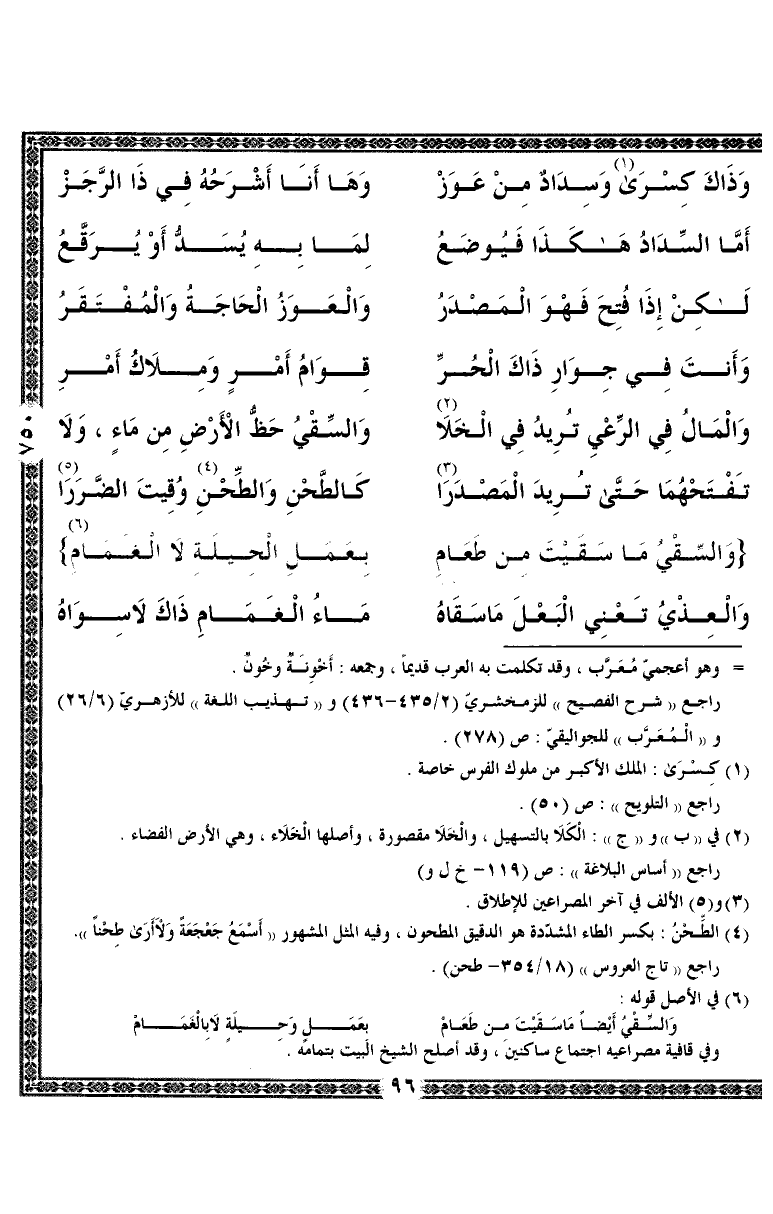 وَذَاكَ كِسْرَىٰ(١) وَسِدَادٌ مِنْ عَوَزْ وَهَا أَنَا أَشْرَحُهُ فِي ذَا الرَّجَزْ
أَمَّا السِّدَادُ هَـٰكَذَا فَيُوضَعُ لِمَا بِهِ يُسَدُّ أَوْ يُرَقَّعُ
لَـٰكِنْ إِذَا فُتِحَ فَهْوَ الْمَصْدَرُ وَالْعَوَزُ الْحَاجَةُ وَالْمُفْتَقَرُ
وَأَنتَ فِي جِوَارِ ذَاكَ الْحُرِّ قِوَامُ أَمْرٍ وَمِلَاكُ أَمْرِ
وَالْمَالُ فِي الرِّعْيِ تُرِيدُ فِي الْخَلَا(٢) وَالسِّقْيُ حَظُّ الْأَرْضِ مِن مَاءٍ ، وَلَا
٧٥٠
تَفْتَحْهُمَا حَتَّىٰ تُرِيدَ الْمَصْدَرَا(٣) كَالطَّحْنِ وَالطِّحْنِ(٤) وُقِيتَ الضَّرَرَا(٥)
{وَالسِّقْيُ مَا سَقَيْتَ مِن طَعَامِ بِعَمَلِ الْحِيلَةِ لَا الْغَمَامِ}(٦)
وَالْعِذْيُ تَعْنِي الْبَعْلَ مَاسَقَاهُ مَاءُ الْغَمَامِ ذَاكَ لَاسِوَاهُ
= وهو أعجميّ مُعَرَّب ، وقد تكلمت به العرب قديماً ، وجمعه : أَخْوِنَةٌ وخُونٌ .
راجع (( شرح الفصيح )) للزمخشريّ (٤٣٥/٢-٤٣٦) و (( تهذيب اللغة )) للأزهريّ (٢٦/٦)
و (( الْمُعَرَّب )) للجواليقيّ : ص (٢٧٨) .
(١) كِسْرَىٰ : الملك الأكبر من ملوك الفرس خاصة .
راجع (( التلويح )) : ص (٥٠) .
(٢) في (( ب )) و (( ج )) : الْكَلَا بالتسهيل ، والْخَلَا مقصورة ، وأصلها الْخَلَاء ، وهي الأرض الفضاء .
راجع (( أساس البلاغة )) : ص (١١٩- خ ل و)
(٣) و(٥) الألف في آخر المصراعين للإطلاق .
(٤) الطِّحْنُ : بكسر الطاء المشدّدة هو الدقيق المطحون ، وفيه المثل المشهور (( أَسْمَعُ جَعْجَعَةً وَلَاأَرَىٰ طِحْناً )).
راجع (( تاج العروس )) (٣٥٤/١٨- طحن) .
(٦) في الأصل قوله :
وَالسِّقْيُ أَيْضاً مَاسَقَيْتَ مِن طَعَامْ بِعَمَلٍ وَحِيلَةٍ لَابِالْغَمَامْ
وفي قافية مصراعيه اجتماع ساكنين ، وقد أصلح الشيخ البيت بتمامه .
٩٦